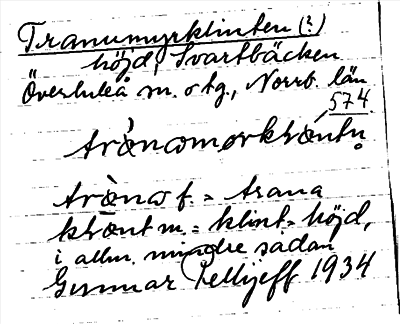 Tranumyrklinten (?)
höjd, Svartbäcken
Överluleå sn. o tg., Norrb. län
574
trànomørkłæntn̥
tràno f. = trana
kłænt m. = klint = höjd,
i allm. mindre sadan
Gunnar Pellijeff 1934